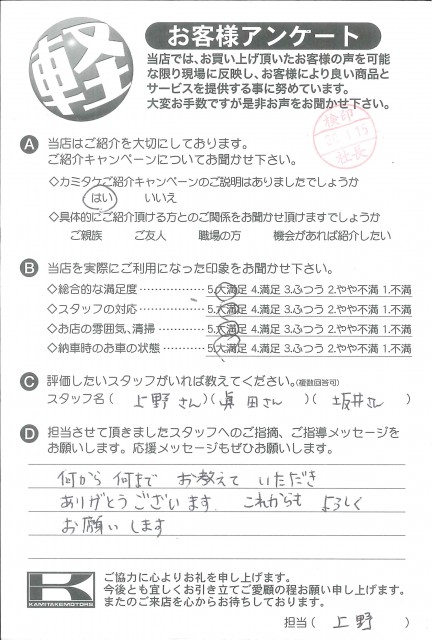 軽
お客様アンケート
当店では、お買い上げ頂いたお客様の声を可能
な限り現場に反映し、お客様により良い商品と
サービスを提供する事に努めています。
大変お手数ですが是非お声をお聞かせ下さい。
検印
社長
A 当店はご紹介を大切にしております。
ご紹介キャンペーンについてお聞かせ下さい。
◇カミタケご紹介キャンペーンのご説明はありましたでしょうか
はい いいえ
◇具体的にご紹介頂ける方とのご関係をお聞かせ頂けますでしょうか
ご親族 ご友人 職場の方 機会があれば紹介したい
B 当店を実際にご利用になった印象をお聞かせ下さい。
◇総合的な満足度……………… 5.大満足 4.満足 3.ふつう 2.やや不満 1.不満
◇スタッフの対応……………… 5.大満足 4.満足 3.ふつう 2.やや不満 1.不満
◇お店の雰囲気、清掃………… 5.大満足 4.満足 3.ふつう 2.やや不満 1.不満
◇納車時のお車の状態………… 5.大満足 4.満足 3.ふつう 2.やや不満 1.不満
C 評価したいスタッフがいれば教えてください。(複数回答可)
スタッフ名 ( 上野さん )( 眞田さん )( 坂井さん )
D 担当させて頂きましたスタッフへのご指摘、ご指導メッセージを
お願いします。応援メッセージもぜひお願いします。
何から何まで お教えて いただき
ありがとうございます. これからも よろしく
お願いします
KAMITAKE MOTORS
ご協力に心よりお礼を申し上げます。
今後とも宜しくお引き立てご愛顧の程お願い申し上げます。
またのご来店を心からお待ちしております。
担当 ( 上野 )